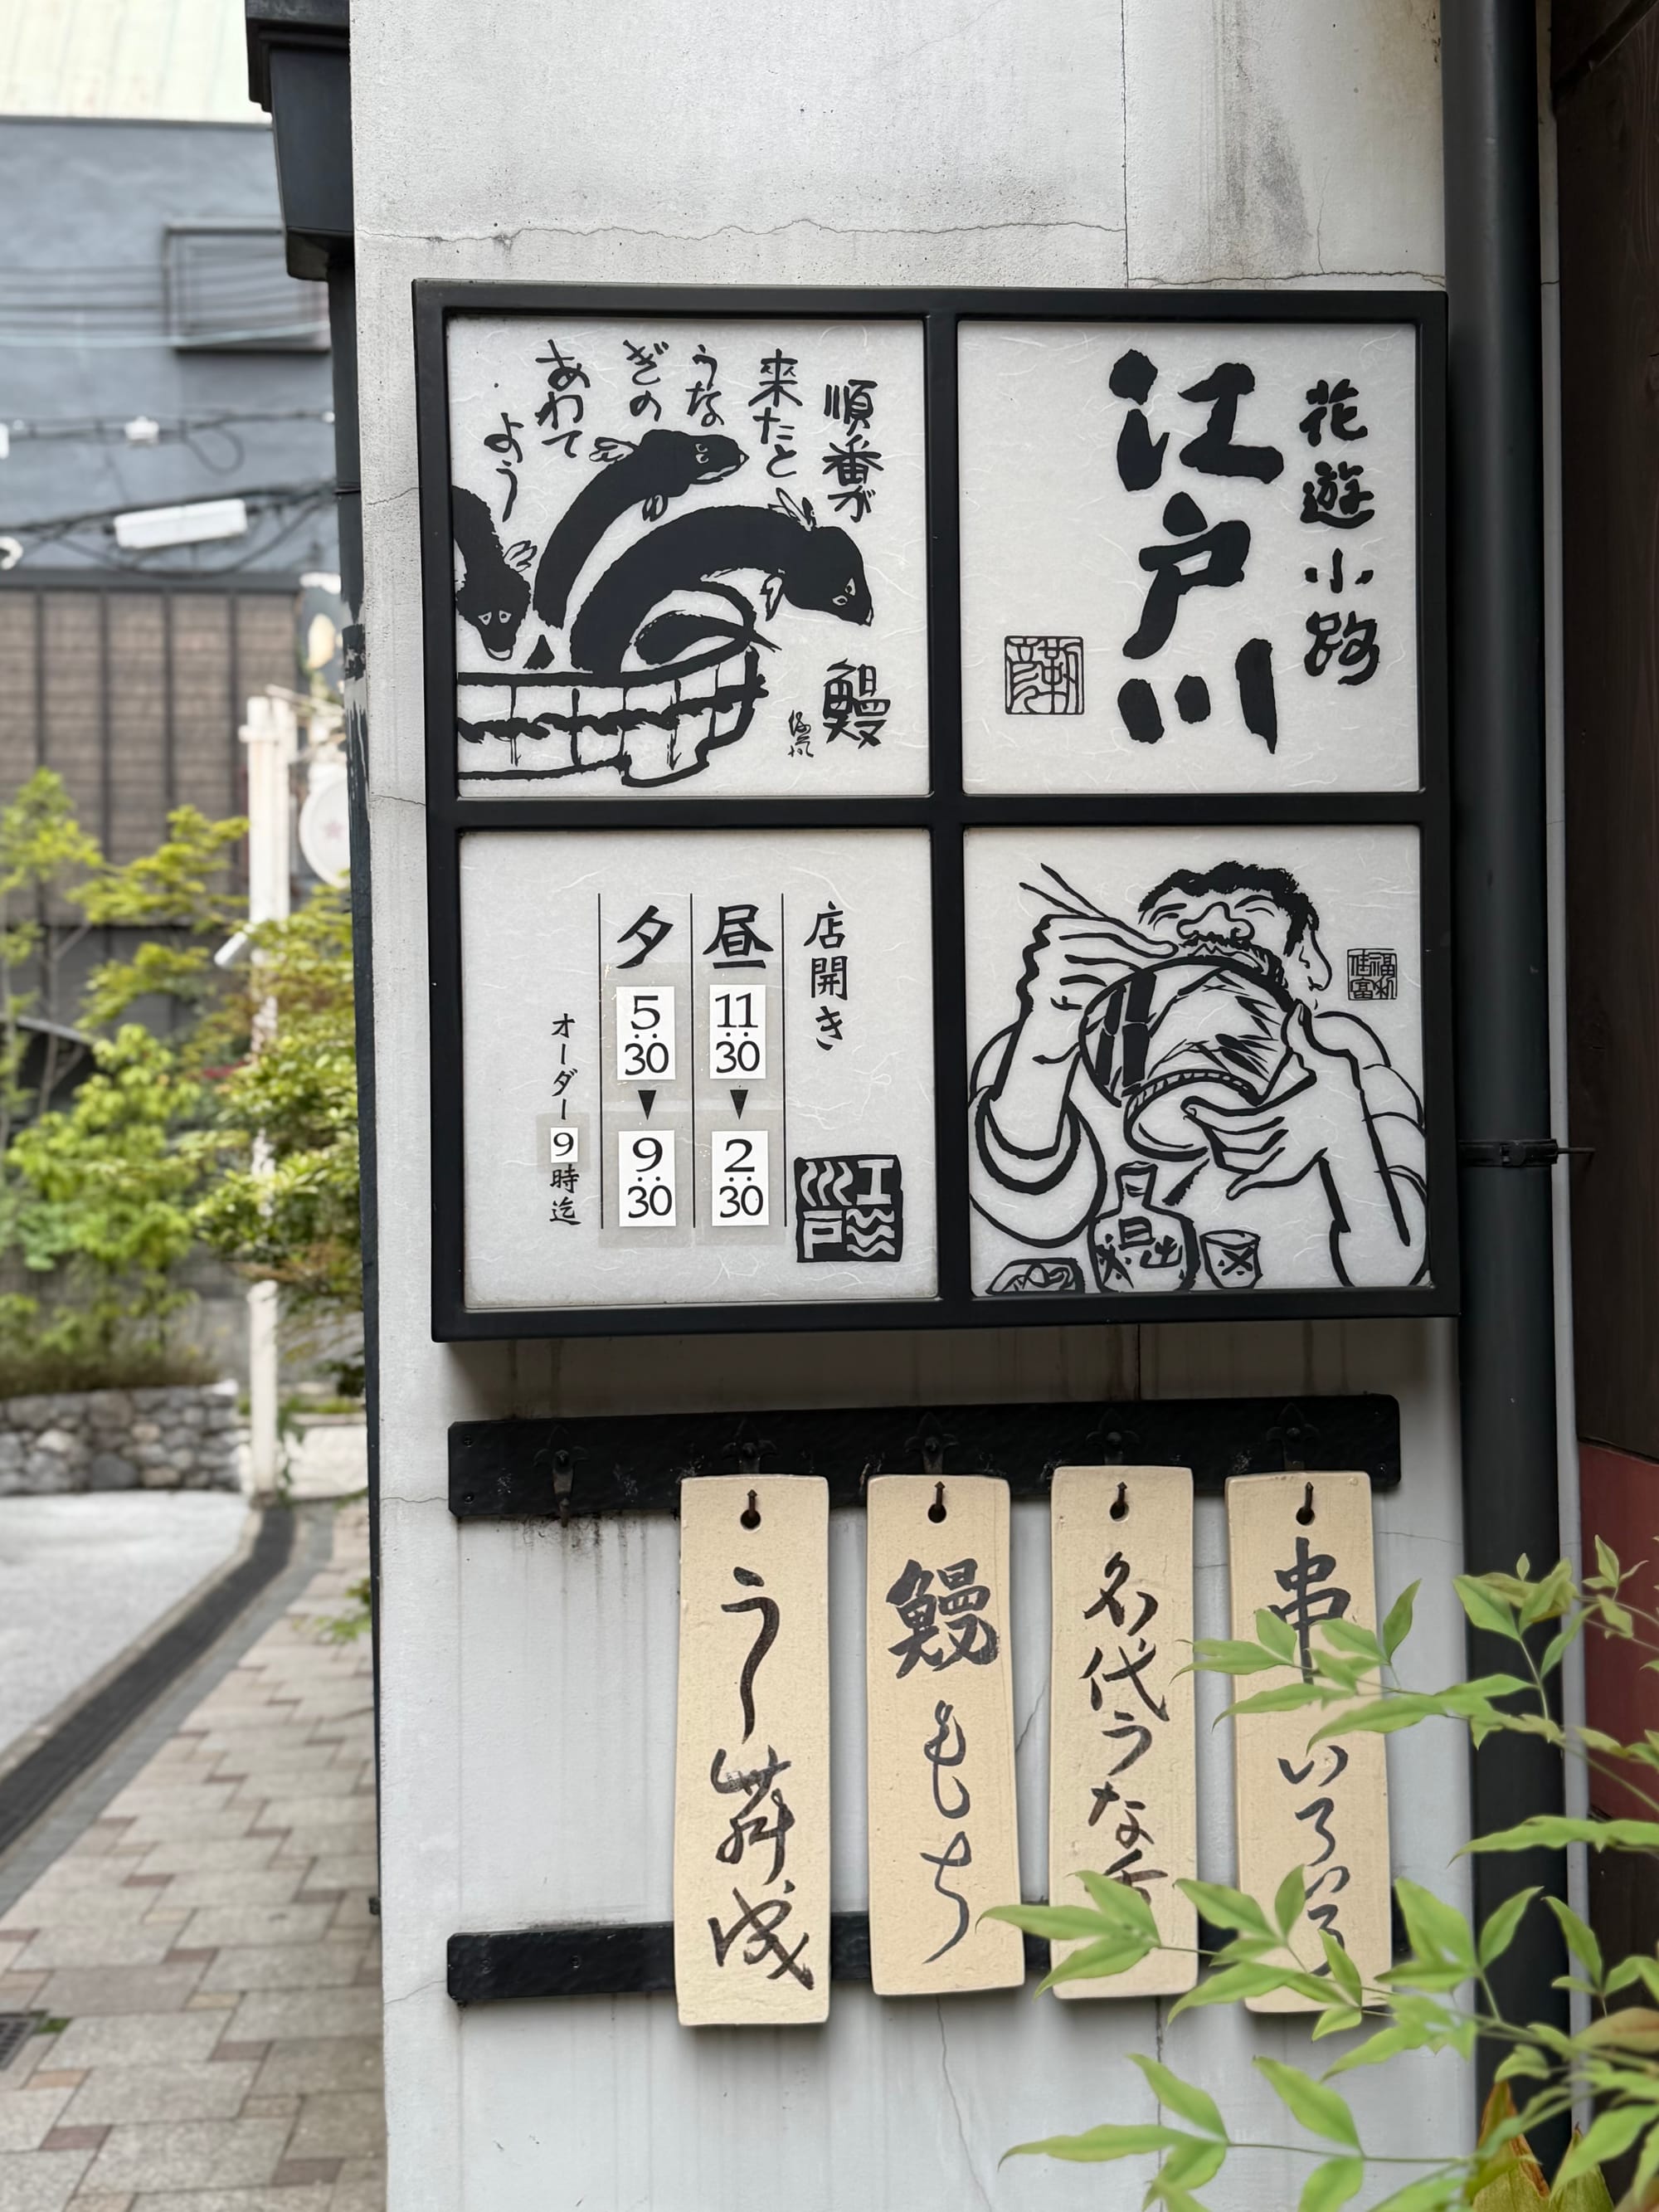 花遊小路
江戸川
順番が
来たと
うな
ぎの
あわて
よう
鰻
店開き
昼 11:30 ▼ 2:30
夕 5:30 ▼ 9:30
オーダー9時迄
江戸
日出
串 いろいろ
名代うな
鰻もち
う舞成